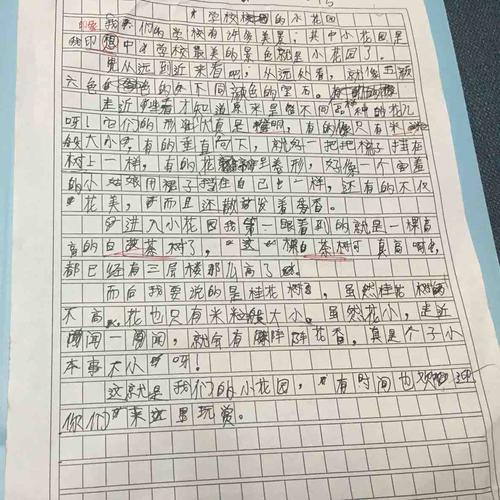 学校的小花园
我们的学校有许多美景，其中小花园是
我印象中学校最美的景色就是小花园了。
先从远到近来看吧，从远处看，就像五颜
六色的不同颜色的宝石。
走近才知道原来是不同品种的花儿
呀！它们的形状真是，有的只有米
般大小，有的垂直向下，就好一把把梯子挂在
树上一样，有的花是卷形，好像一个害羞
的小姑娘用裙子挡在自己一样，还有的不仅
花美，而且还散发着香。
进入小花园我第一眼看到的就是一棵高
高的白茶树了，这棵白茶树可真高啊，
都已经有三层楼那么高了。
而后我要说的是桂花树，虽然桂花树
不高，花也只有米粒般大小，虽然花小，走近
闻一闻，就会有阵阵花香，真是个子小
本事大呀！
这就是我们的小花园，有时间也欢迎
你们来这里玩赏。